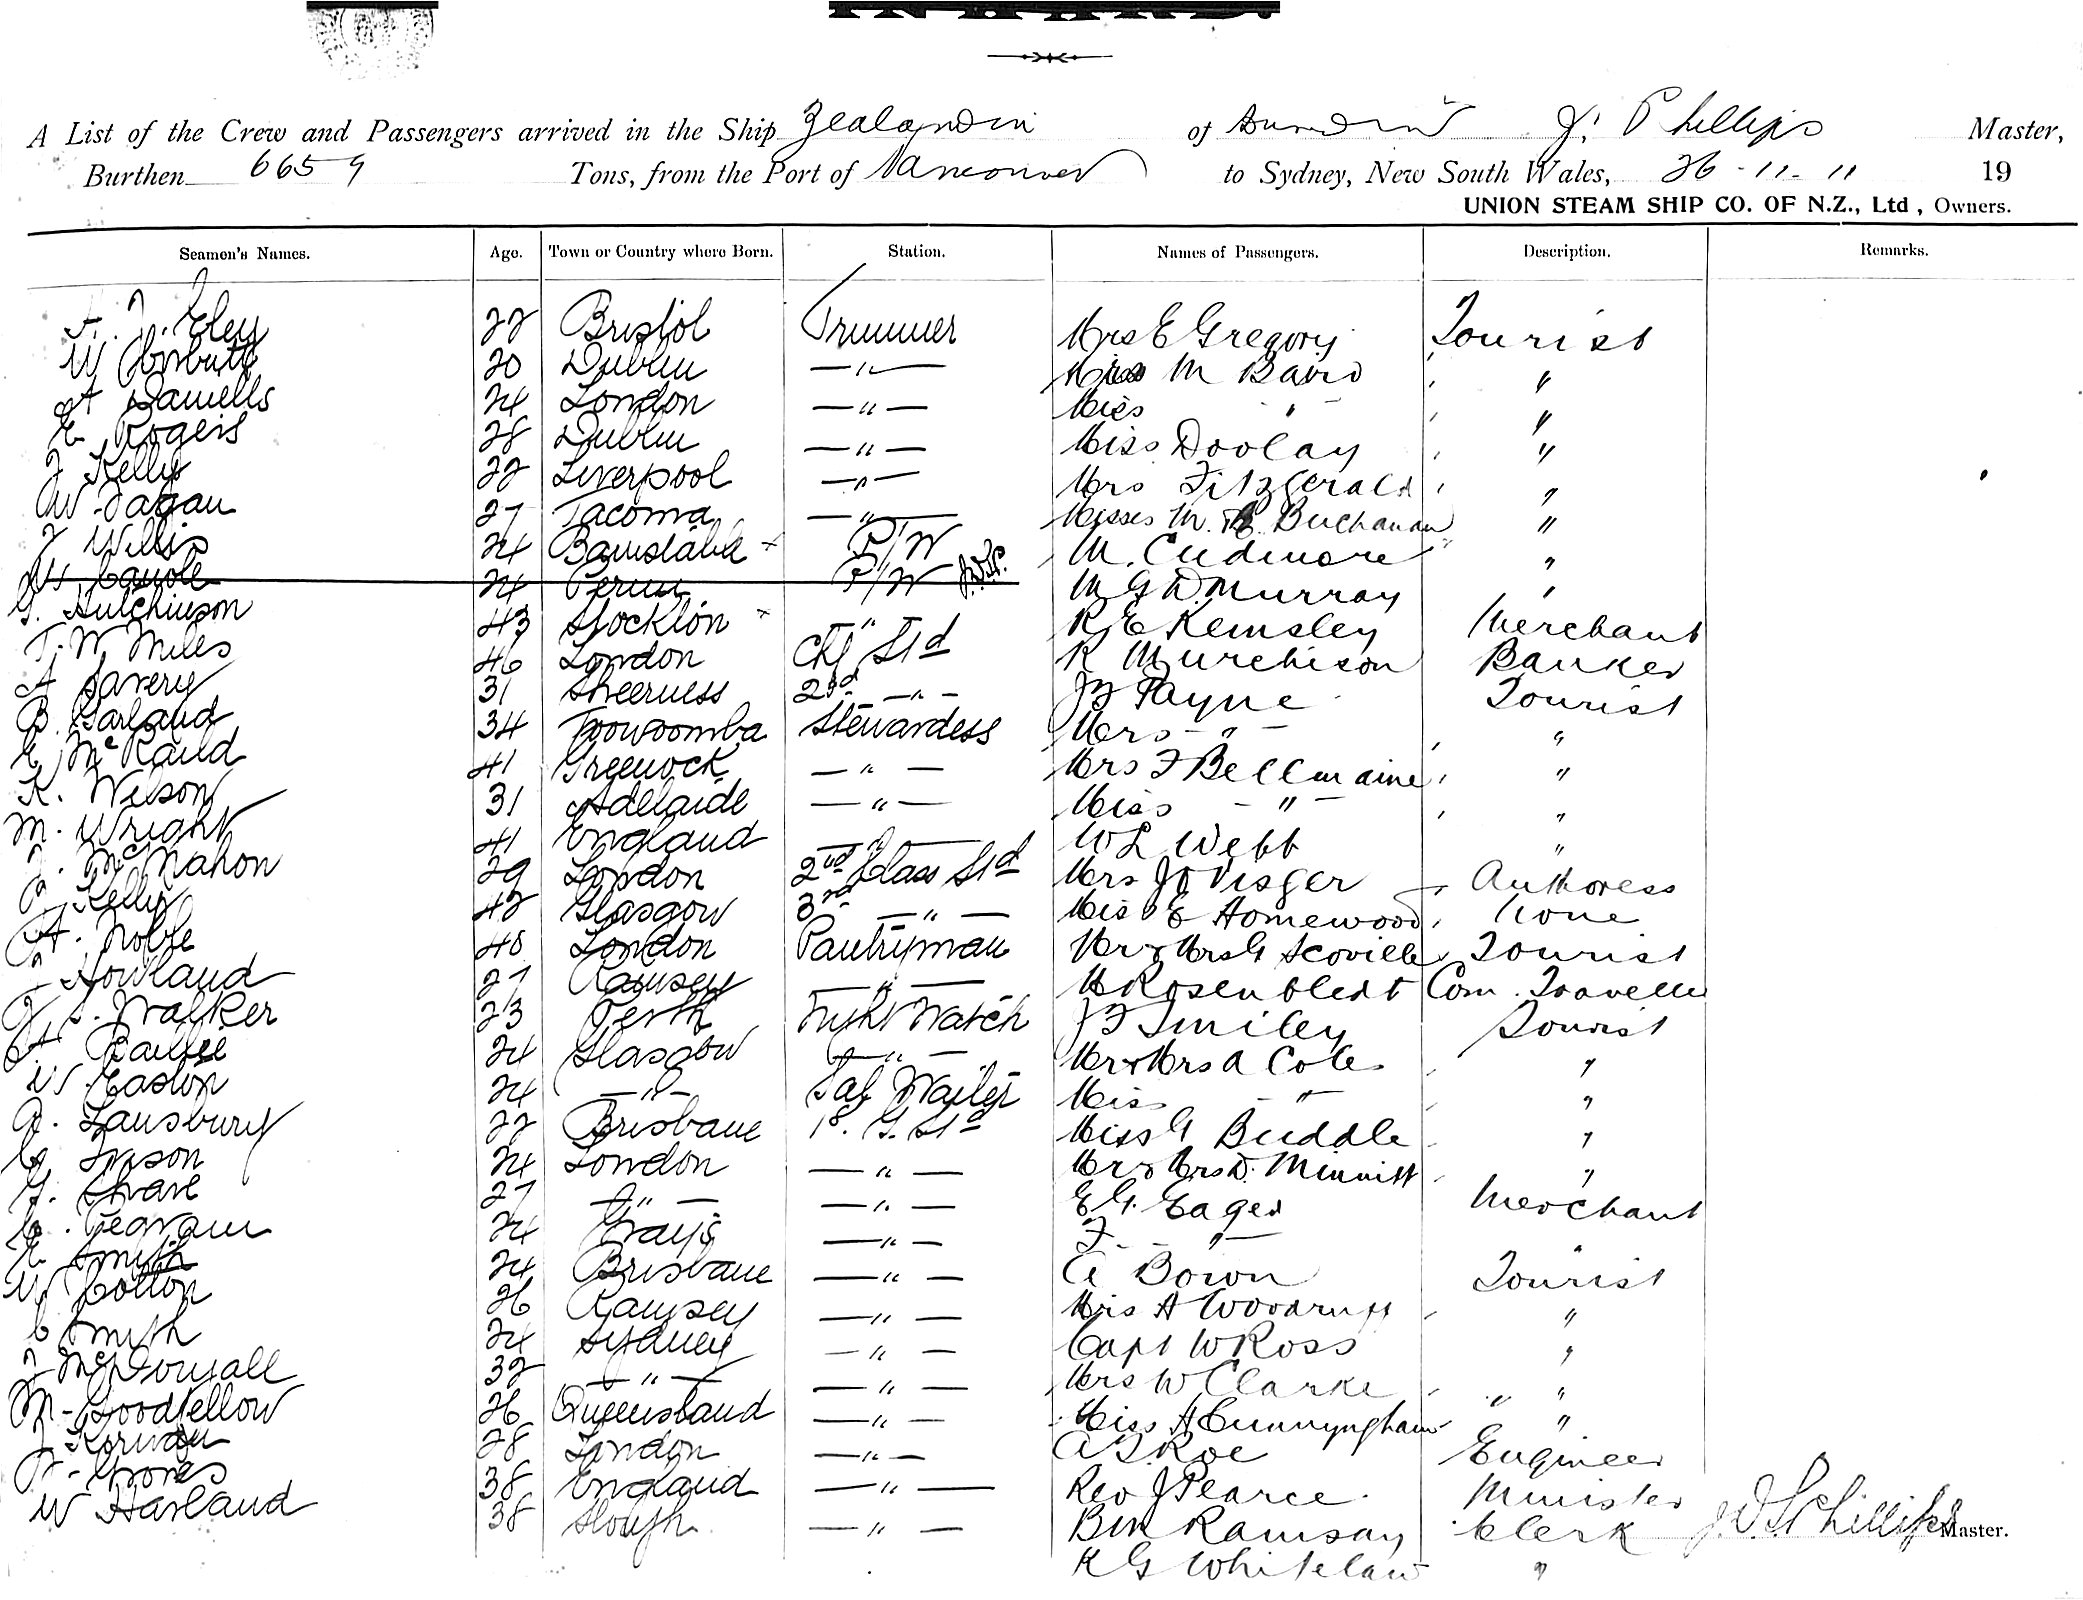 A List of the Crew and Passengers arrived in the Ship Zealandia of J. Phillips Master,
Burthen 6659 Tons, from the Port of Vancouver to Sydney, New South Wales, 26-11-11 19
UNION STEAM SHIP CO. OF N.Z., Ltd, Owners.
Seamen's Names. Age. Town or Country where Born. Station. Names of Passengers. Description. Remarks.
F. J. Eley 22 Bristol Trimmer Mrs E Gregory Tourist
W Corbett 20 Dublin —"— Miss M Baird "
A Daniells 24 London —"— Miss " "
E Rogers 28 Dublin —"— Miss Doolay "
J Kelly 22 Liverpool —"— Mrs Fitzgerald "
W Fagan 27 Tacoma —"— Misses M. E. Buchanan "
J Willis 24 P/W M. Cudmore "
24 P/W M G D Murray "
G. Hutchinson 43 Stockton —"— R E Kemsley Merchant
T. W. Miles 46 London Chf Std R Murchison Banker
A Savery 31 Sheerness 2nd —"— J F Payne Tourist
B. Garland 34 Toowoomba Stewardess Mrs —"— "
E McRaild 41 Greenock —"— Mrs F Bellmaine "
K. Wilson 31 Adelaide —"— Miss —"— "
M. Wright 41 England —"— W L Webb "
J. McMahon 29 London 2nd Class Std Mrs J O Visger Authoress
P. Kelly 42 Glasgow 3rd —"— Miss E Homewood None
A. Wolfe 40 London Pantryman Mr & Mrs G Scoville Tourist
J Howland 27 Ramsey —"— H Rosenbledt Com. Traveller
J. S. Walker 23 Perth Night Watch J F Smiley Tourist
A. Baillie 24 Glasgow —"— Mr & Mrs A Cole "
W. Easton 24 —"— Sal Waiter Miss —"— "
A. Lansbury 22 Brisbane 1st. G. Std Miss G Buddle "
C. Inson 24 London —"— Mr & Mrs D. Minnitt "
F. Share 27 —"— —"— E G. Eager Merchant
C. Pegram 24 Grays —"— F. —"— "
E Smith 24 Brisbane —"— A Bown Tourist
W Cotton 26 Ramsey —"— Mrs A Woodruff "
C Smith 24 Sydney —"— Capt W Ross "
J McDougall 32 —"— —"— Mrs W Clarke "
M. Goodfellow 26 Queensland —"— Miss A Cunnyngham "
J Kerwan 28 London —"— A S Roe Engineer
38 England —"— Rev J Pearce Minister
W Harland 38 Slough —"— Ben Ramsay Clerk J. D. S. Phillips Master.
R G Whitelaw "